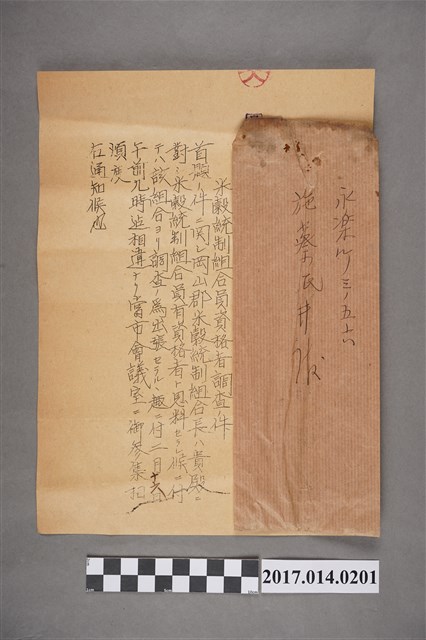 米穀統制組合員資格者調査ノ件
首題ノ件ニ関シ岡山郡米穀統制組合長ハ貴殿ニ
對シ米穀統制組合員有資格者ト思料セラレ候ニ付
テハ該組合ヨリ調査ノ為出張セラルヽ趣ニ付二月十六日
午前九時迄相違ナク當市會議室ニ御参集相
煩度
右通知候也
永楽町三ノ五六
施 氏
2017.014.0201